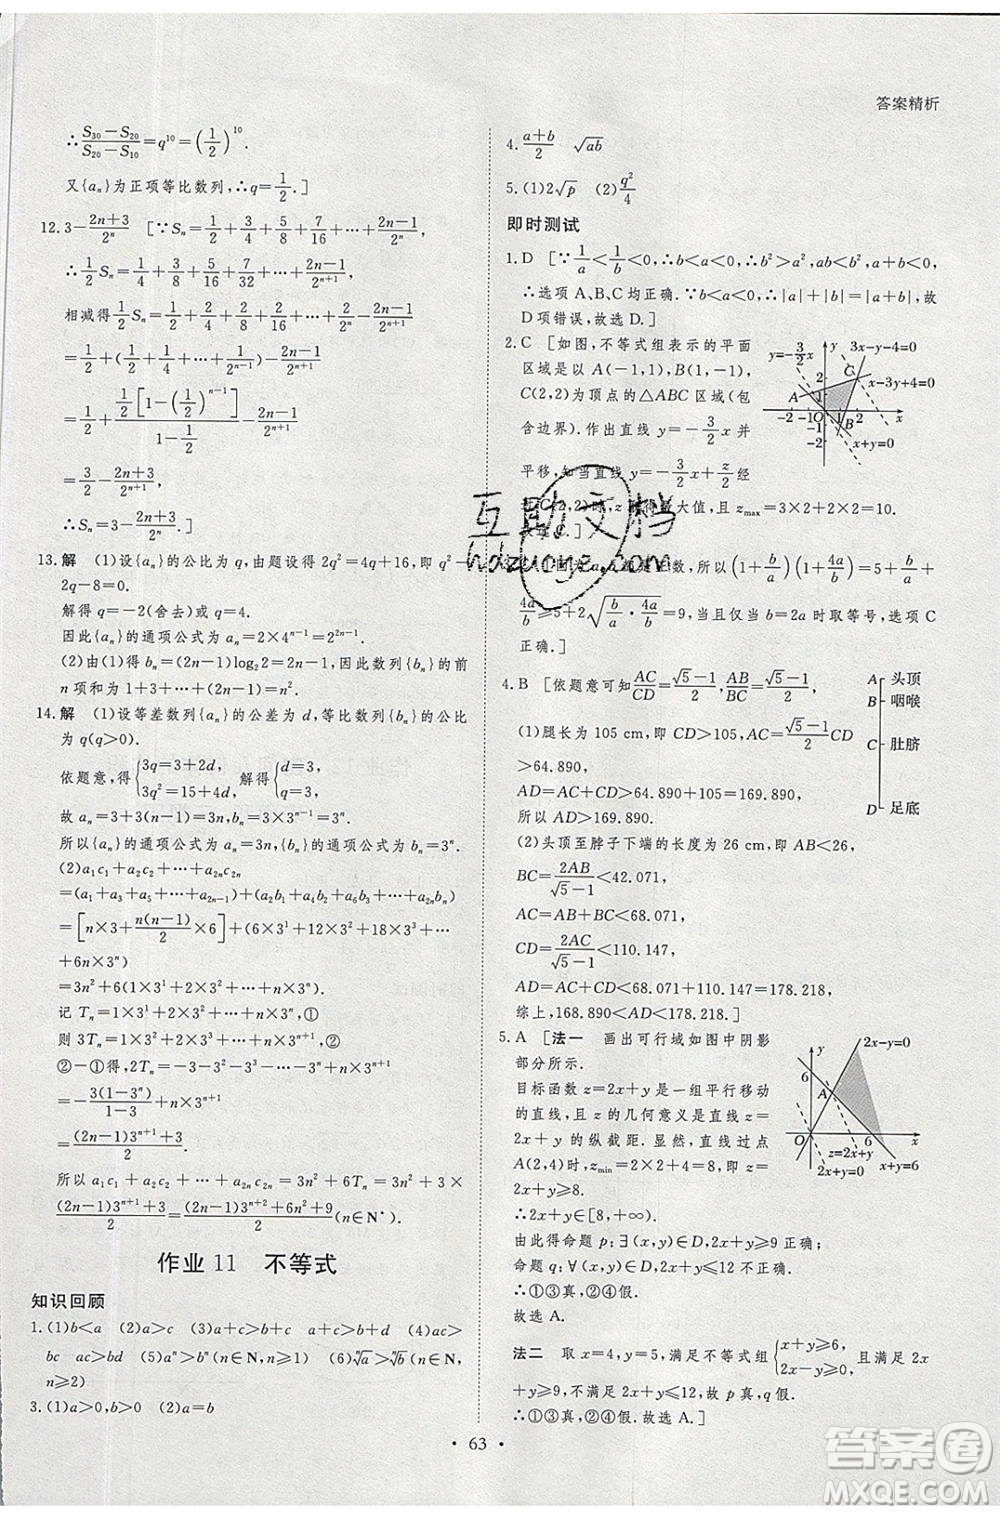 答案精析
∴(S₃₀−S₂₀)/(S₂₀−S₁₀)=q¹⁰=(1/2)¹⁰.
又{aₙ}为正项等比数列,∴q=1/2.]
12.3−(2n+3)/2ⁿ [∵Sₙ=1/2+3/4+5/8+7/16+…+(2n−1)/2ⁿ,
∴1/2Sₙ=1/4+3/8+5/16+7/32+…+(2n−1)/2ⁿ⁺¹,
相减得1/2Sₙ=1/2+2/4+2/8+2/16+…+2/2ⁿ−(2n−1)/2ⁿ⁺¹
=1/2+(1/2+1/4+…+1/2ⁿ⁻¹)−(2n−1)/2ⁿ⁺¹
=1/2+(1/2[1−(1/2)ⁿ⁻¹])/(1−1/2)−(2n−1)/2ⁿ⁺¹
=3/2−(2n+3)/2ⁿ⁺¹,
∴Sₙ=3−(2n+3)/2ⁿ.]
13.解 (1)设{aₙ}的公比为q,由题设得2q²=4q+16,即q²−
2q−8=0.
解得q=−2(舍去)或q=4.
因此{aₙ}的通项公式为aₙ=2×4ⁿ⁻¹=2²ⁿ⁻¹.
(2)由(1)得bₙ=(2n−1)log₂2=2n−1,因此数列{bₙ}的前
n项和为1+3+…+(2n−1)=n².
14.解 (1)设等差数列{aₙ}的公差为d,等比数列{bₙ}的公比
为q(q>0).
依题意,得{3q=3+2d, 3q²=15+4d, 解得{d=3, q=3,
故aₙ=3+3(n−1)=3n,bₙ=3×3ⁿ⁻¹=3ⁿ.
所以{aₙ}的通项公式为aₙ=3n,{bₙ}的通项公式为bₙ=3ⁿ.
(2)a₁c₁+a₂c₂+…+a₂ₙc₂ₙ
=(a₁+a₃+a₅+…+a₂ₙ₋₁)+(a₂b₁+a₄b₂+a₆b₃+…+a₂ₙbₙ)
=[n×3+n(n−1)/2×6]+(6×3¹+12×3²+18×3³+…
+6n×3ⁿ)
=3n²+6(1×3¹+2×3²+…+n×3ⁿ).
记 Tₙ=1×3¹+2×3²+…+n×3ⁿ,①
则 3Tₙ=1×3²+2×3³+…+n×3ⁿ⁺¹,②
②−①得,2Tₙ=−3−3²−3³−…−3ⁿ+n×3ⁿ⁺¹
=−3(1−3ⁿ)/(1−3)+n×3ⁿ⁺¹
=((2n−1)3ⁿ⁺¹+3)/2.
所以a₁c₁+a₂c₂+…+a₂ₙc₂ₙ=3n²+6Tₙ=3n²+3×
((2n−1)3ⁿ⁺¹+3)/2=((2n−1)3ⁿ⁺²+6n²+9)/2(n∈N*).
作业11 不等式
知识回顾
1.(1)b<a (2)a>c (3)a+c>b+c a+c>b+d (4)ac>
bc ac>bd (5)aⁿ>bⁿ(n∈N,n≥1) (6)ⁿ√a>ⁿ√b(n∈
N,n≥2)
3.(1)a>0,b>0 (2)a=b
4.(a+b)/2 √ab
5.(1)2√p (2)q²/4
即时测试
1.D [∵1/a<1/b<0,∴b<a<0,∴b²>a²,ab<b²,a+b<0,
∴选项A、B、C均正确.∵b<a<0,∴|a|+|b|=|a+b|,故
D项错误,故选D.]
2.C [如图,不等式组表示的平面
区域是以A(−1,1),B(1,−1),
C(2,2)为顶点的△ABC区域(包
含边界).作出直线y=−3/2x并
平移,知当直线y=−3/2x+z/2经
过C(2,2)时,z取得最大值,且zmax=3×2+2×2=10.]
y=−3/2x
3x−y−4=0
x−3y+4=0
x+y=0
y
2
1
A
C
−2 −1 O 1 2 x
−1
−2
B
3.C [因为a,b都是正数,所以(1+b/a)(1+4a/b)=5+b/a+
4a/b≥5+2√(b/a·4a/b)=9,当且仅当b=2a时取等号,选项C
正确.]
4.B [依题意可知AC/CD=(√5−1)/2,AB/BC=(√5−1)/2,
(1)腿长为105 cm,即CD>105,AC=(√5−1)/2CD
>64.890,
AD=AC+CD>64.890+105=169.890,
所以AD>169.890.
(2)头顶至脖子下端的长度为26 cm,即AB<26,
BC=2AB/(√5−1)<42.071,
AC=AB+BC<68.071,
CD=2AC/(√5−1)<110.147,
AD=AC+CD<68.071+110.147=178.218,
综上,168.890<AD<178.218.]
A 头顶
B 咽喉
C 肚脐
D 足底
5.A [法一 画出可行域如图中阴影
部分所示.
目标函数z=2x+y是一组平行移动
的直线,且z的几何意义是直线z=
2x+y的纵截距.显然,直线过点
A(2,4)时,zmin=2×2+4=8,即z=
2x+y≥8.
∴2x+y∈[8,+∞).
由此得命题p:∃(x,y)∈D,2x+y≥9正确;
命题q:∀(x,y)∈D,2x+y≤12不正确.
∴①③真,②④假.
故选A.
y
2x−y=0
6
A
O 6 x
z=2x+y
2x+y=0
x+y=6
法二 取x=4,y=5,满足不等式组{x+y≥6, 2x−y≥0,且满足2x
+y≥9,不满足2x+y≤12,故p真,q假.
∴①③真,②④假.故选A.]
• 63 •
互助文档
hdzuoye.com
答案圈
MXQE.COM